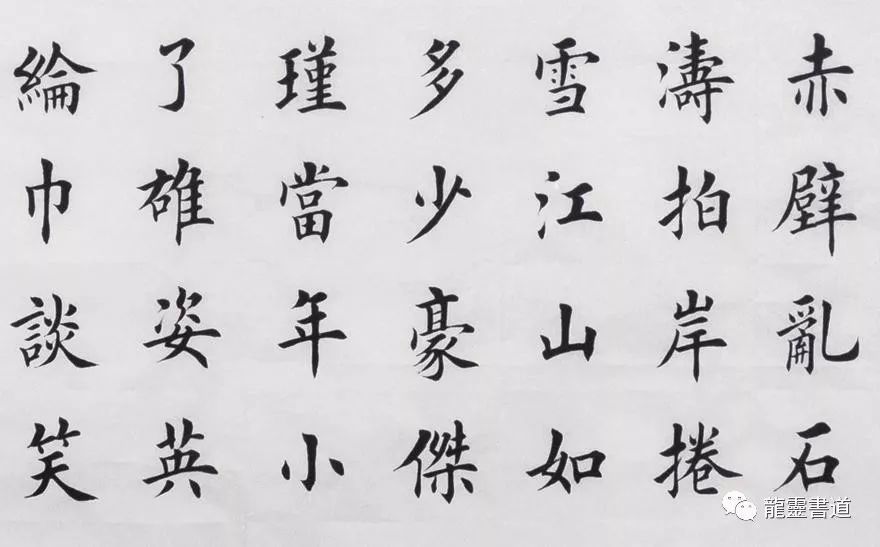 赤壁亂石
濤拍岸捲
雪江山如
多少豪傑
瑾當年小
了雄姿英
綸巾談笑
龍靈書道